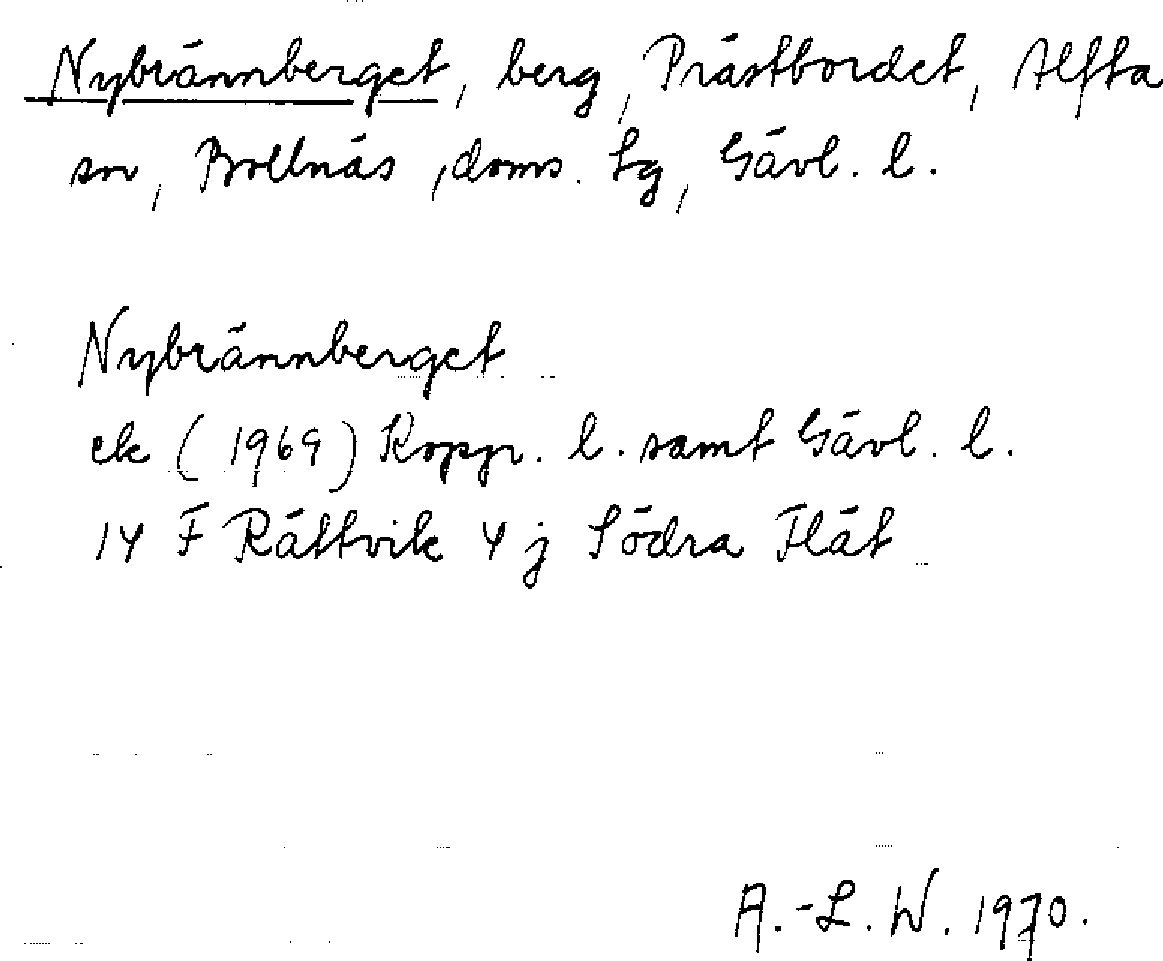 Nybrännberget, berg, Prästbordet, Alfta
sn, Bollnäs, doms. tg, Gävl. l.
Nybrännberget
ek (1969) Kopp. l. samt Gävl. l.
14 F Rättvik 4 j Södra Flät
A.-L. W. 1970.